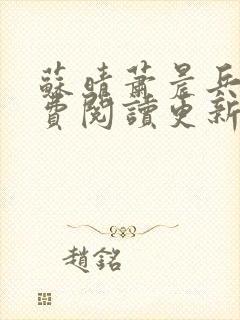 蘇晴蕭晨兵
費閱讀更新
趙銘